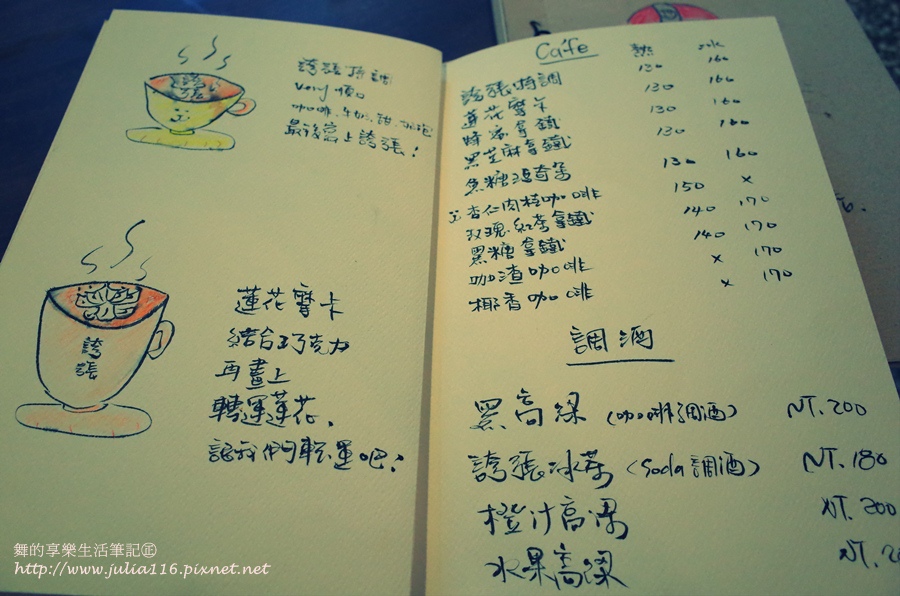 誇張
誇張特調
very 順口
咖啡、牛奶、甜、奶泡
最後寫上誇張!
誇張
蓮花摩卡
結合巧克力
再畫上
轉運蓮花,
讓我們轉運吧!
Cafe 熱 ice
誇張特調 130 160
蓮花摩卡 130 160
蜂蜜拿鐵 130 160
黑芝麻拿鐵 130 160
焦糖瑪奇朵 130 160
杏仁肉桂咖啡 150 x
玫瑰紅茶拿鐵 140 170
黑糖拿鐵 140 170
咖渣咖啡 x 170
椰香咖啡 x 170
調酒
黑高粱(咖啡調酒) NT.200
誇張冰茶(Soda調酒) NT.180
橙汁高粱 NT.200
水果高粱 NT.2
舞的享樂生活筆記
http://www.julia116.pixnet.net